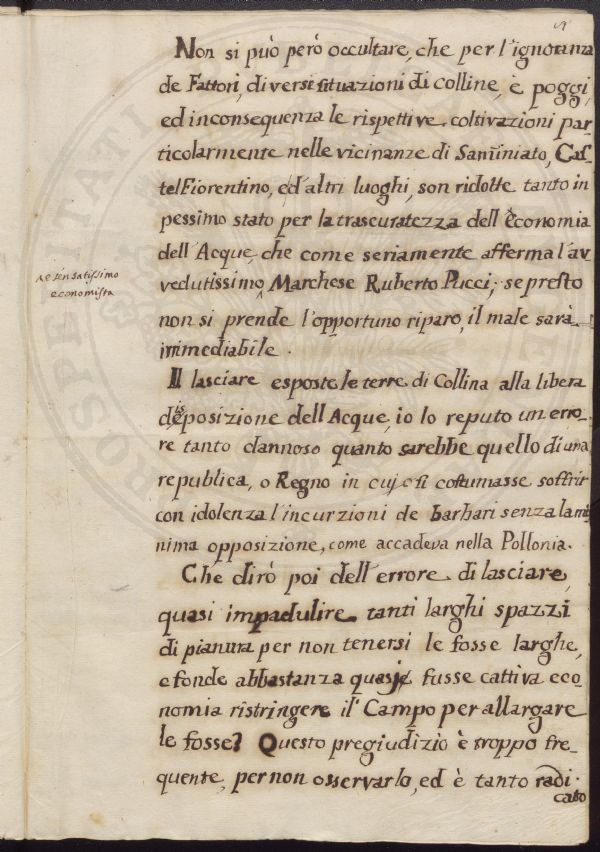 Non si può però occultare, che per l'ignoranza
de Fattori, diversi situazioni di colline, e poggi,
ed inconsequenza le rispettive coltivazioni par
ticolarmente nelle vicinanze di Saminiato, Cas
tel Fiorentino, ed altri luoghi, son ridotte tanto in
pessimo stato per la trascuratezza dell'economia
dell'Acque, che come seriamente afferma l'av
vedutissimo Marchese Ruberto Pucci; se presto
e sensatissimo
economista
non si prende l'opportuno riparo, il male sarà
irrimediabile.
Il lasciare esposte le terre di Collina alla libera
disposizione dell'Acque, io lo reputo un erro
re tanto dannoso quanto sarebbe quello di una
republica, o Regno in cui si costumasse soffrir
con idolenza l'incurzioni de barbari senza la mi
nima opposizione, come accadeva nella Pollonia.
Che dirò poi dell'errore di lasciare,
quasi impadulire tanti larghi spazzi
di pianura per non tenersi le fosse larghe,
e fonde abbastanza quasi fusse cattiva eco
nomia ristringere il Campo per allargare
le fosse? Questo pregiudizio è troppo fre
quente, per non osservarlo, ed è tanto radi
cato
PROSPERITATI